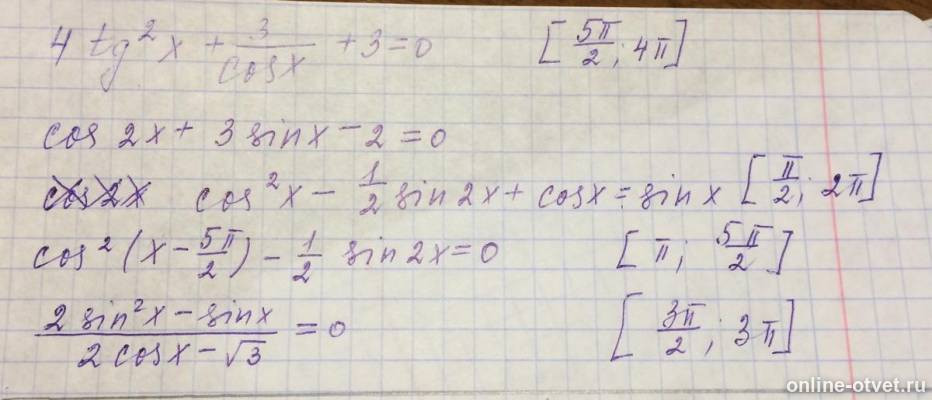 4 tg²x + 3/cosx + 3 = 0 [5π/2; 4π]
cos 2x + 3 sinx - 2 = 0
cos2x cos²x - 1/2 sin2x + cosx = sinx [π/2; 2π]
cos²(x - 5π/2) - 1/2 sin2x = 0 [π; 5π/2]
(2 sin²x - sinx)/(2cosx - √3) = 0 [3π/2; 3π]
online-otvet.ru